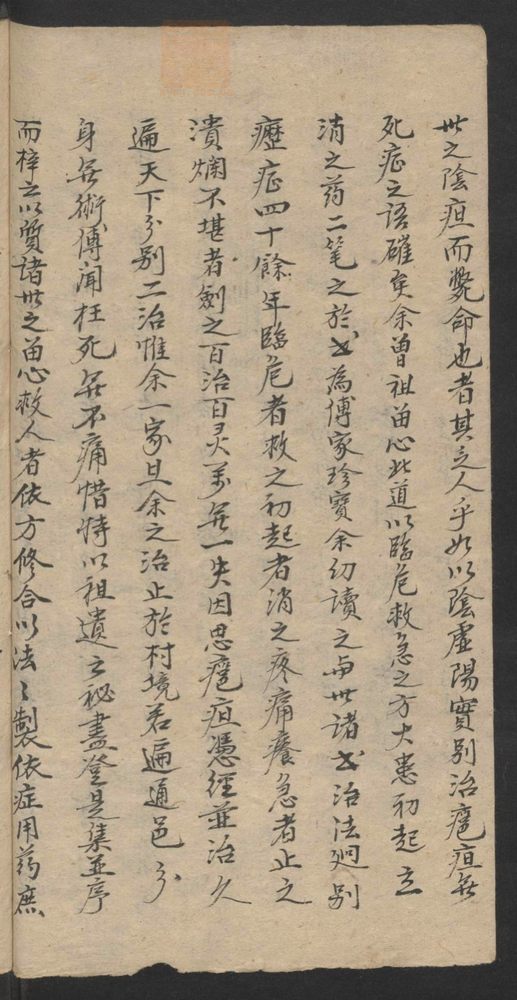 世之陰疽而斃命也者其立人乎如以陰虛陽實别治瘡疽無
死症之語確矣余曾祖留心此道以臨危救急之方大患初起立
消之药二笔之於书為傳家珍寶余幼讀之与世諸书治法迥别
歷症四十餘年臨危者救之初起者消之疼痛癢急者止之
潰爛不堪者劍之百治百灵萬無一失因思瘡疽憑經並治久
遍天下分别二治惟余一家旦余之治止於村境若遍通邑分
身無術傳闻枉死無不痛惜特以祖遺之秘盡登是集並序
而梓之以質諸世之留心救人者依方修合以法〻製依症用药庶